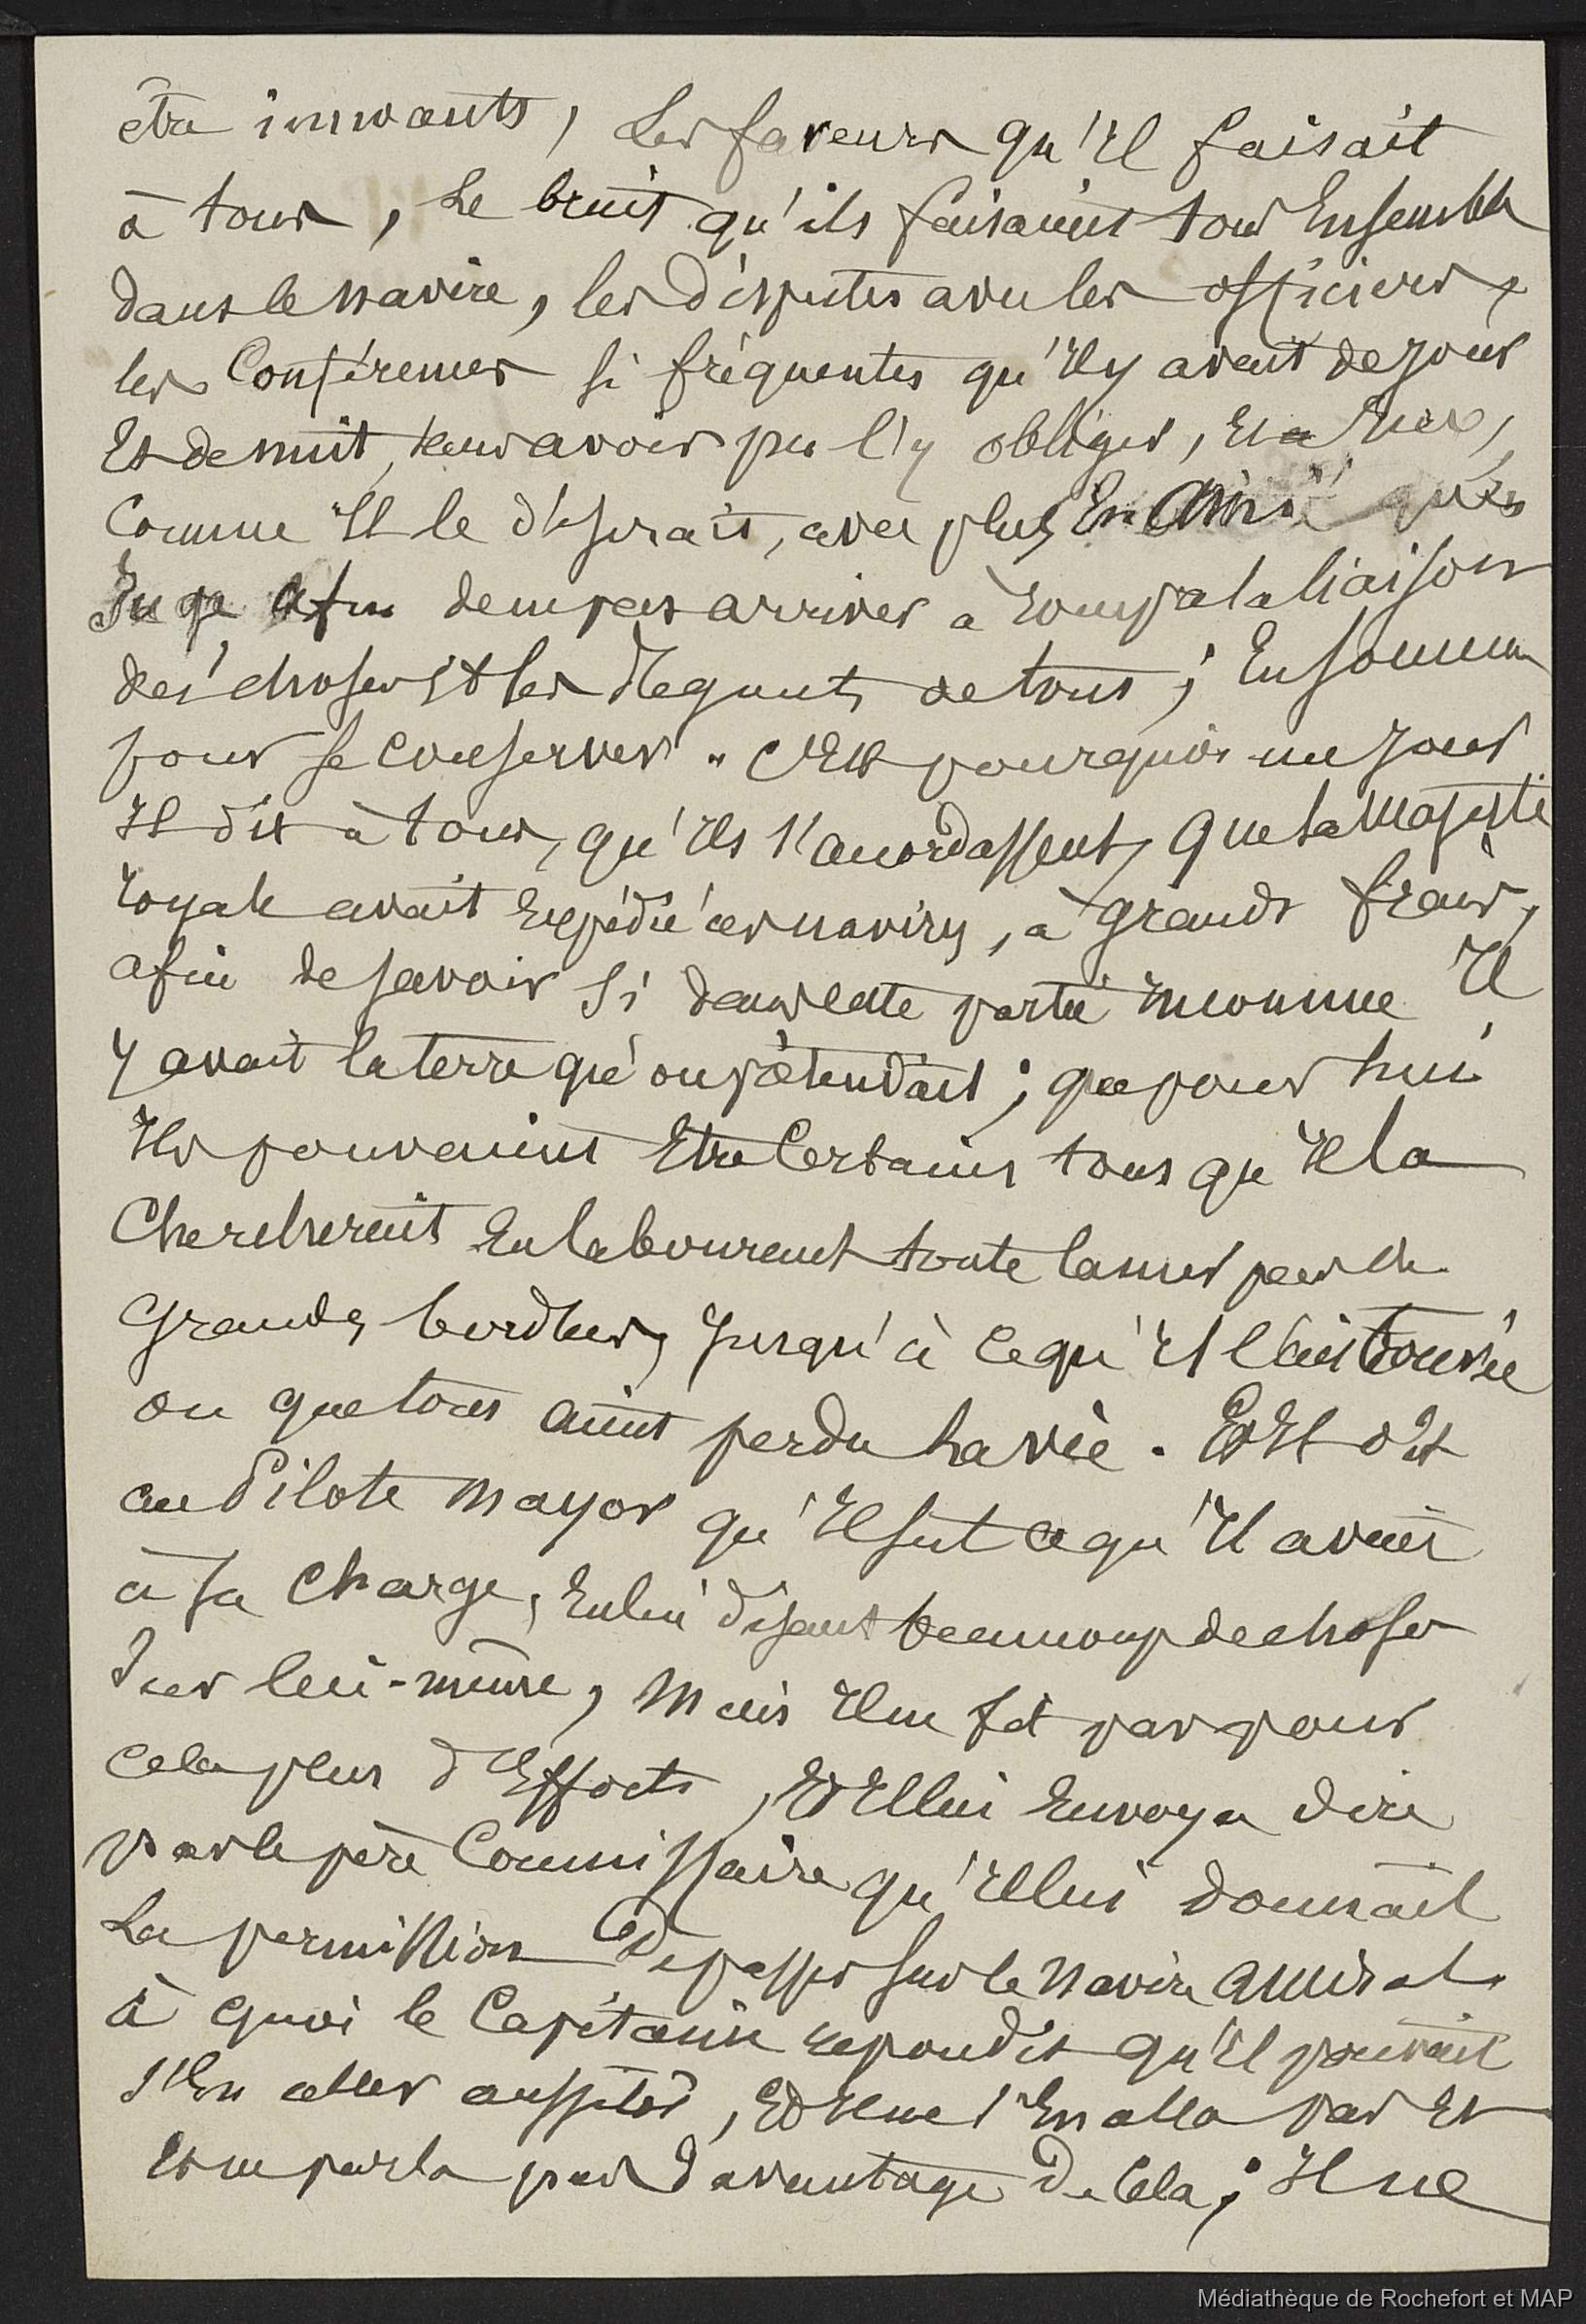 être innocents, Les faveurs qu'Il faisait
à tous, Le bruit qu'ils faisaient tous Ensemble
dans le navire, les disputes avec les officiers,
les Conférences si fréquentes qu'Il y avait de jour
Et de nuit, sans avoir pu l'y obliger,
Comme Il le désirait, avec plus
Juge afin de ne pas arriver à rompre la liaison
des choses Et les de tous ; En somme
pour se conserver. C'Est pourquoi un jour
Il dit à tous, qu'Ils s'accordassent, que Sa Majesté
royale avait Expédié ces navires, à grands frais,
afin de savoir Si dans cette partie Inconnue Il
y avait la terre qu'on prétendait ; que pour lui
Ils pouvaient Etre Certains tous qu'Il la
Chercherait En labourant toute la mer par de
Grandes bordées, Jusqu'à ce qu'Il l'ait trouvée
ou que tous aient perdu la vie. Et Il dit
au Pilote mayor qu'Il fit ce qu'Il avait
à sa Charge, En lui disant beaucoup de choses
Sur lui-même, Mais Il ne fit pas pour
cela plus d'Efforts, Et Il lui Envoya dire
par le père Commissaire qu'Il lui donnait
La permission de passer sur le navire amiral.
à quoi le Capitaine répondit qu'Il pouvait
s'En aller aussitôt, Et Il ne s'En alla pas Et
Et ne parla pas davantage de Cela ; Il ne
Médiathèque de Rochefort et MAP